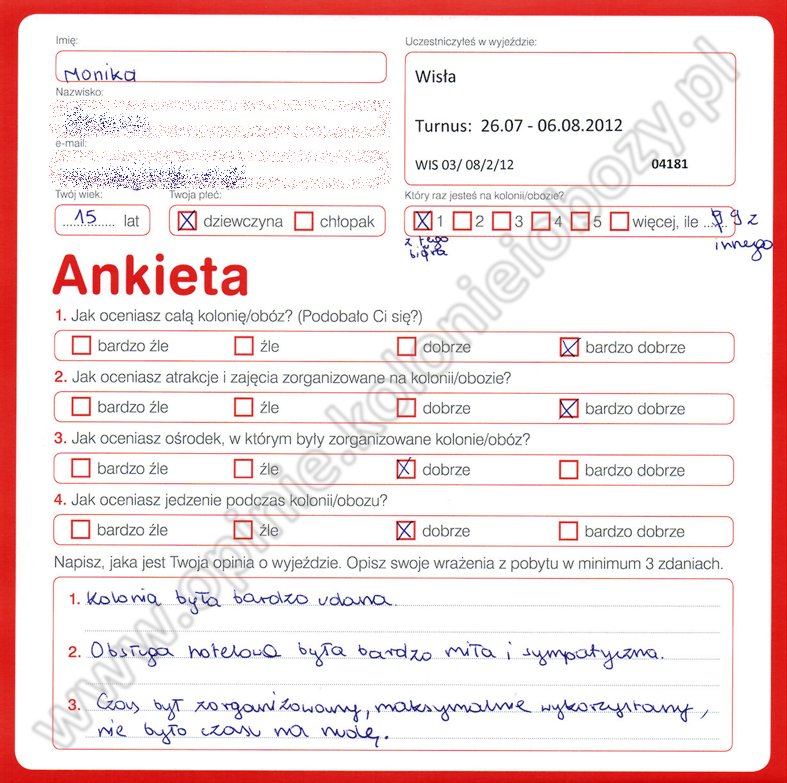 Imię:
Monika
Nazwisko:
e-mail:
Uczestniczyłeś w wyjeździe:
Wisła
Turnus: 26.07 - 06.08.2012
WIS 03/ 08/2/12 04181
Twój wiek:
15 lat
Twoja płeć:
dziewczyna chłopak
Który raz jesteś na kolonii/obozie?
1 2 3 4 5 więcej, ile 9 z
z tego biura
innego
Ankieta
1. Jak oceniasz całą kolonię/obóz? (Podobało Ci się?)
bardzo źle źle dobrze bardzo dobrze
2. Jak oceniasz atrakcje i zajęcia zorganizowane na kolonii/obozie?
bardzo źle źle dobrze bardzo dobrze
3. Jak oceniasz ośrodek, w którym były zorganizowane kolonie/obóz?
bardzo źle źle dobrze bardzo dobrze
4. Jak oceniasz jedzenie podczas kolonii/obozu?
bardzo źle źle dobrze bardzo dobrze
Napisz, jaka jest Twoja opinia o wyjeździe. Opisz swoje wrażenia z pobytu w minimum 3 zdaniach.
1. Kolonia była bardzo udana.
2. Obsługa hotelowa była bardzo miła i sympatyczna.
3. Czas był zorganizowany, maksymalnie wykorzystany,
nie było czasu na nudę.
www.opinie.kolonieiobozy.pl